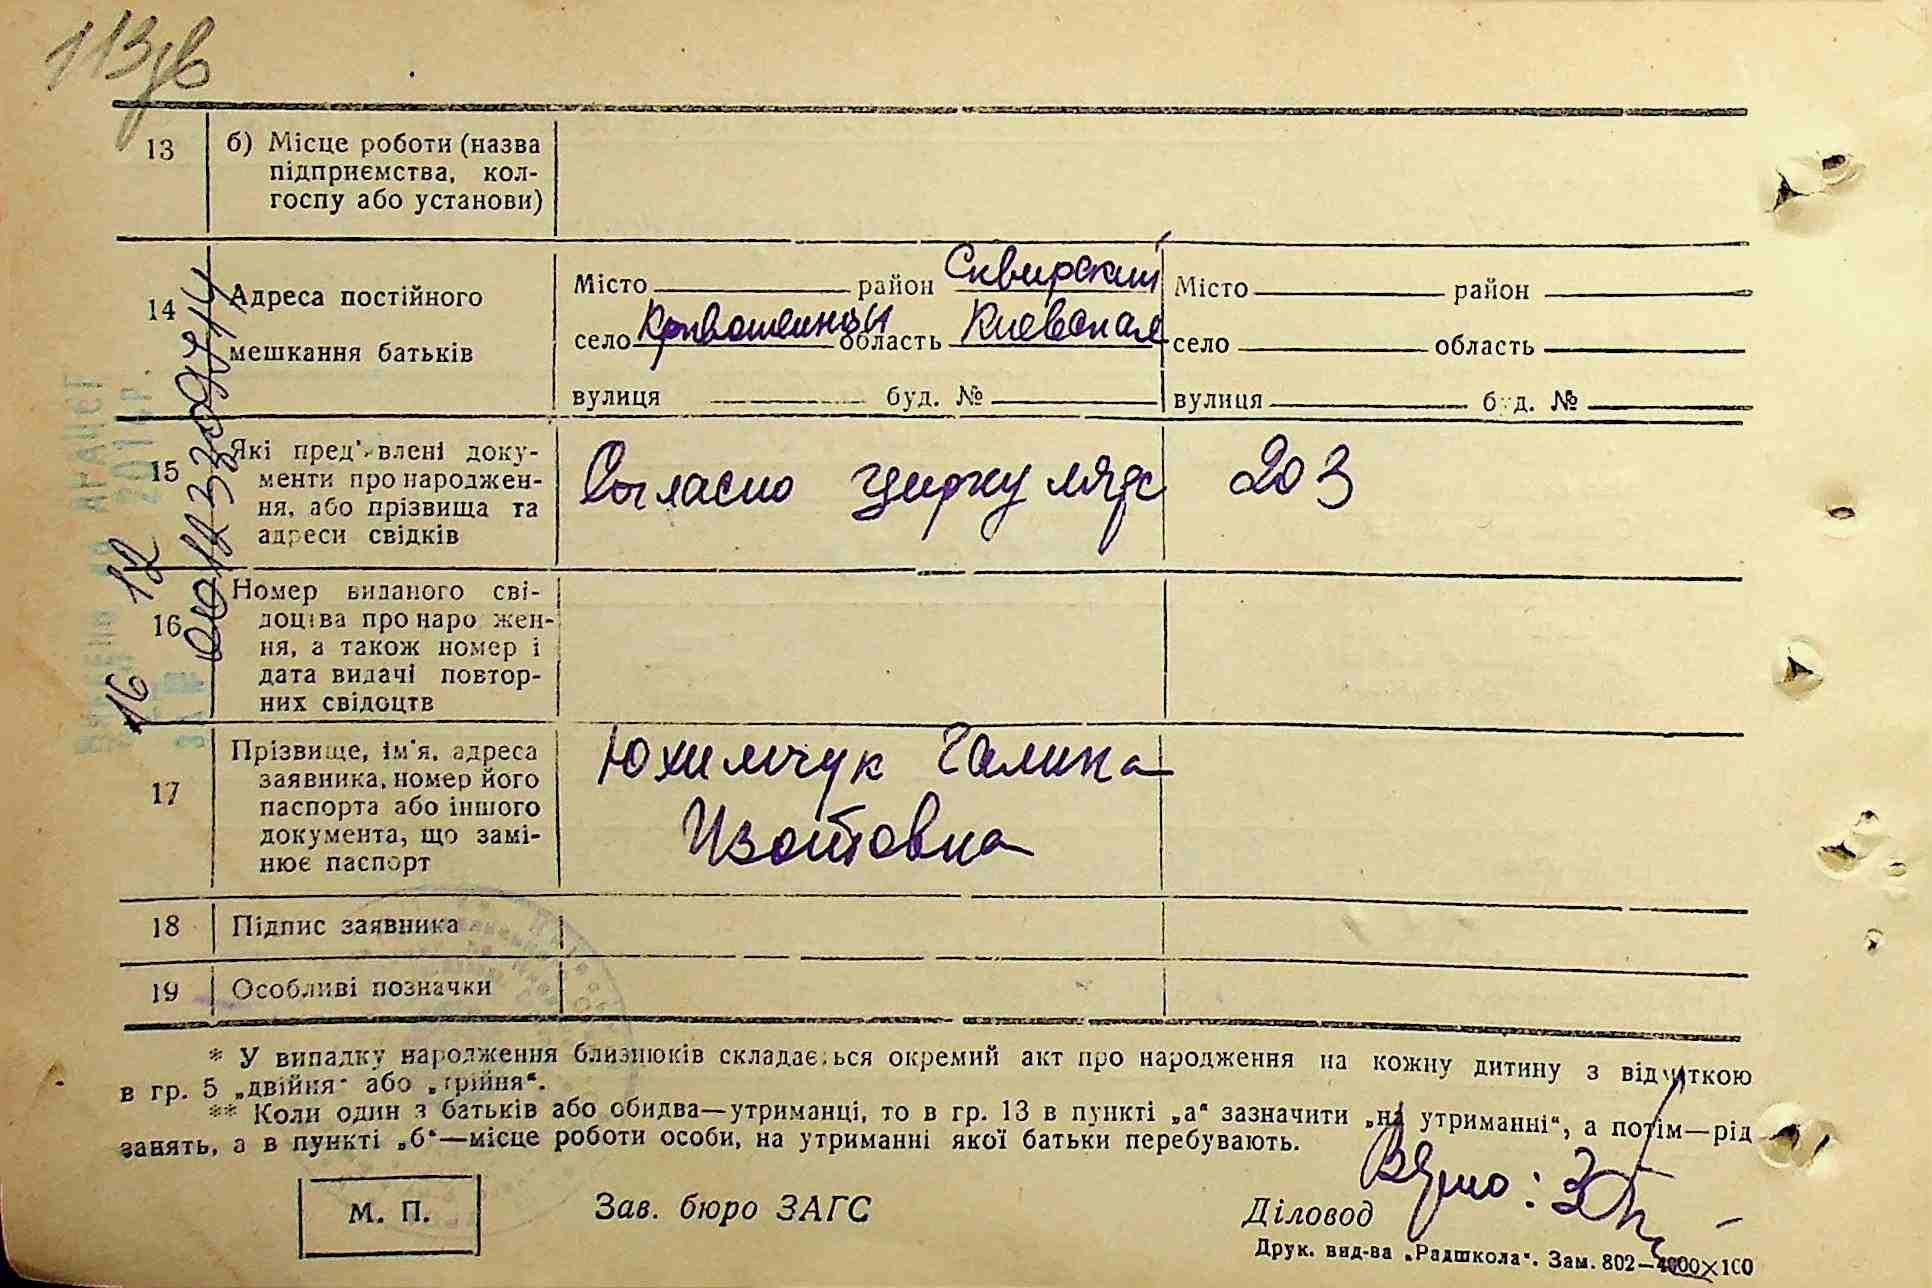 113зв
13 б) Місце роботи (назва
підприємства, кол-
госпу або установи)
14 Адреса постійного
мешкання батьків
Місто район Сквирский
село Кривошеинцы область Киевская
вулиця буд. №
Місто район
село область
вулиця буд. №
15 Які пред'влені доку-
менти про народжен-
ня, або прізвища та
адреси свідків
Согласно циркуляра 203
16 Номер виданого сві-
доцтва про народжен-
ня, а також номер і
дата видачі повтор-
них свідоцтв
16 12
17 Прізвище, ім'я, адреса
заявника, номер його
паспорта або іншого
документа, що замі-
нює паспорт
Юхимчук Галина
Изотовна
18 Підпис заявника
19 Особливі позначки
* У випадку народження близнюків складається окремий акт про народження на кожну дитину з відміткою
в гр. 5 „двійня“ або „трійня“.
** Коли один з батьків або обидва—утриманці, то в гр. 13 в пункті „а“ зазначити „на утриманні“, а потім—рід
занять, а в пункті „б“—місце роботи особи, на утриманні якої батьки перебувають.
М. П.
Зав. бюро ЗАГС
Діловод
Верно:
Друк. вид-ва „Радшкола“. Зам. 802—4000×100